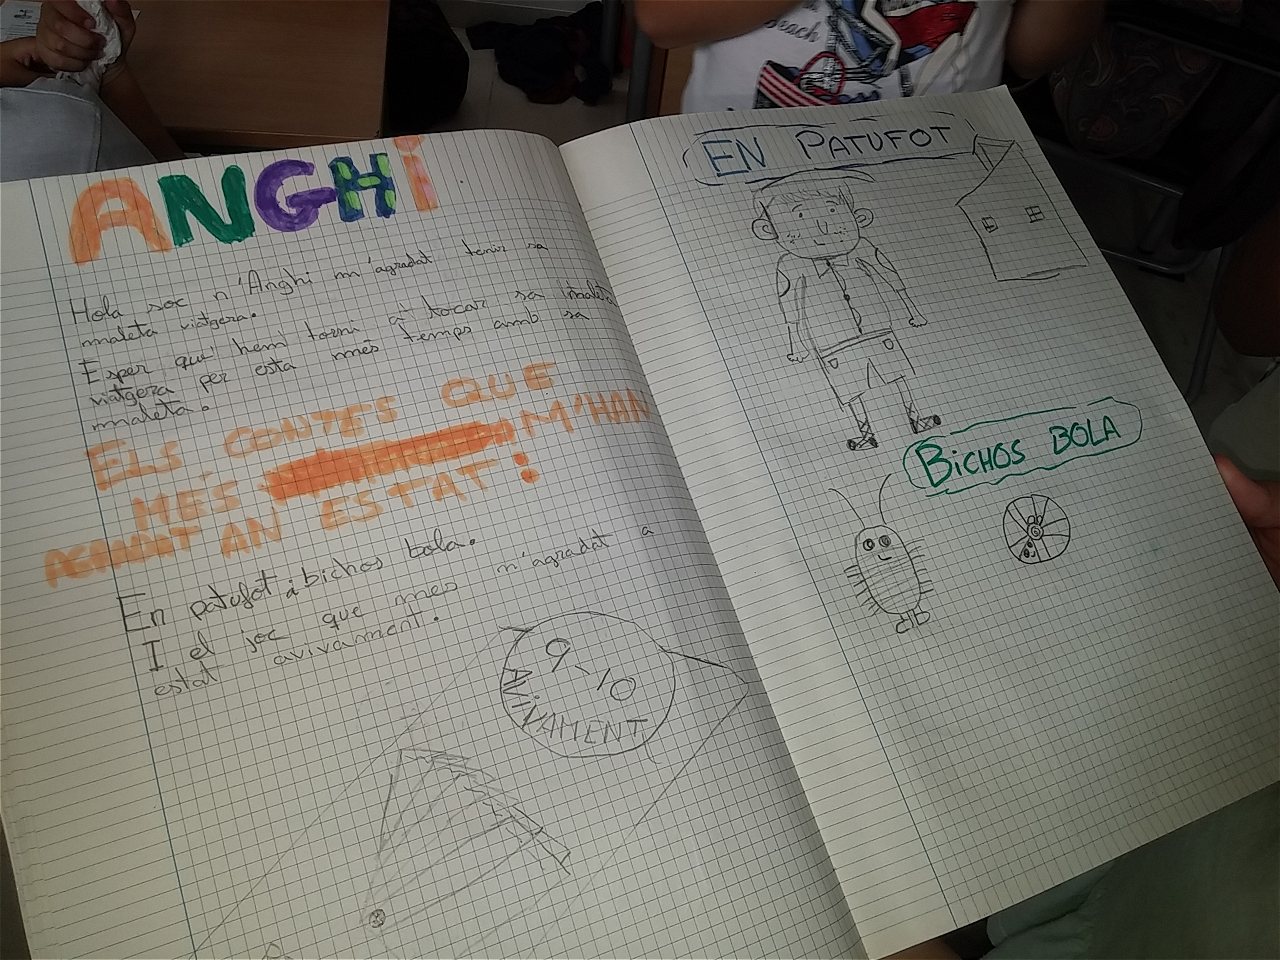 ANGHi
Hola soc n'Anghi m'agradat tenir sa
maleta viatgera.
Esper que hem torni a tocar sa maleta
viatgera per esta més temps amb sa
maleta.
ELS CONTES QUE
MES M'HAN
AGRADAT AN ESTAT:
En patufot i bichos bola.
I el joc que mes m'agradat a
estat avivament.
9-10
AViVAMENT
EN PATUFOT
BiCHOS BOLA
Beach